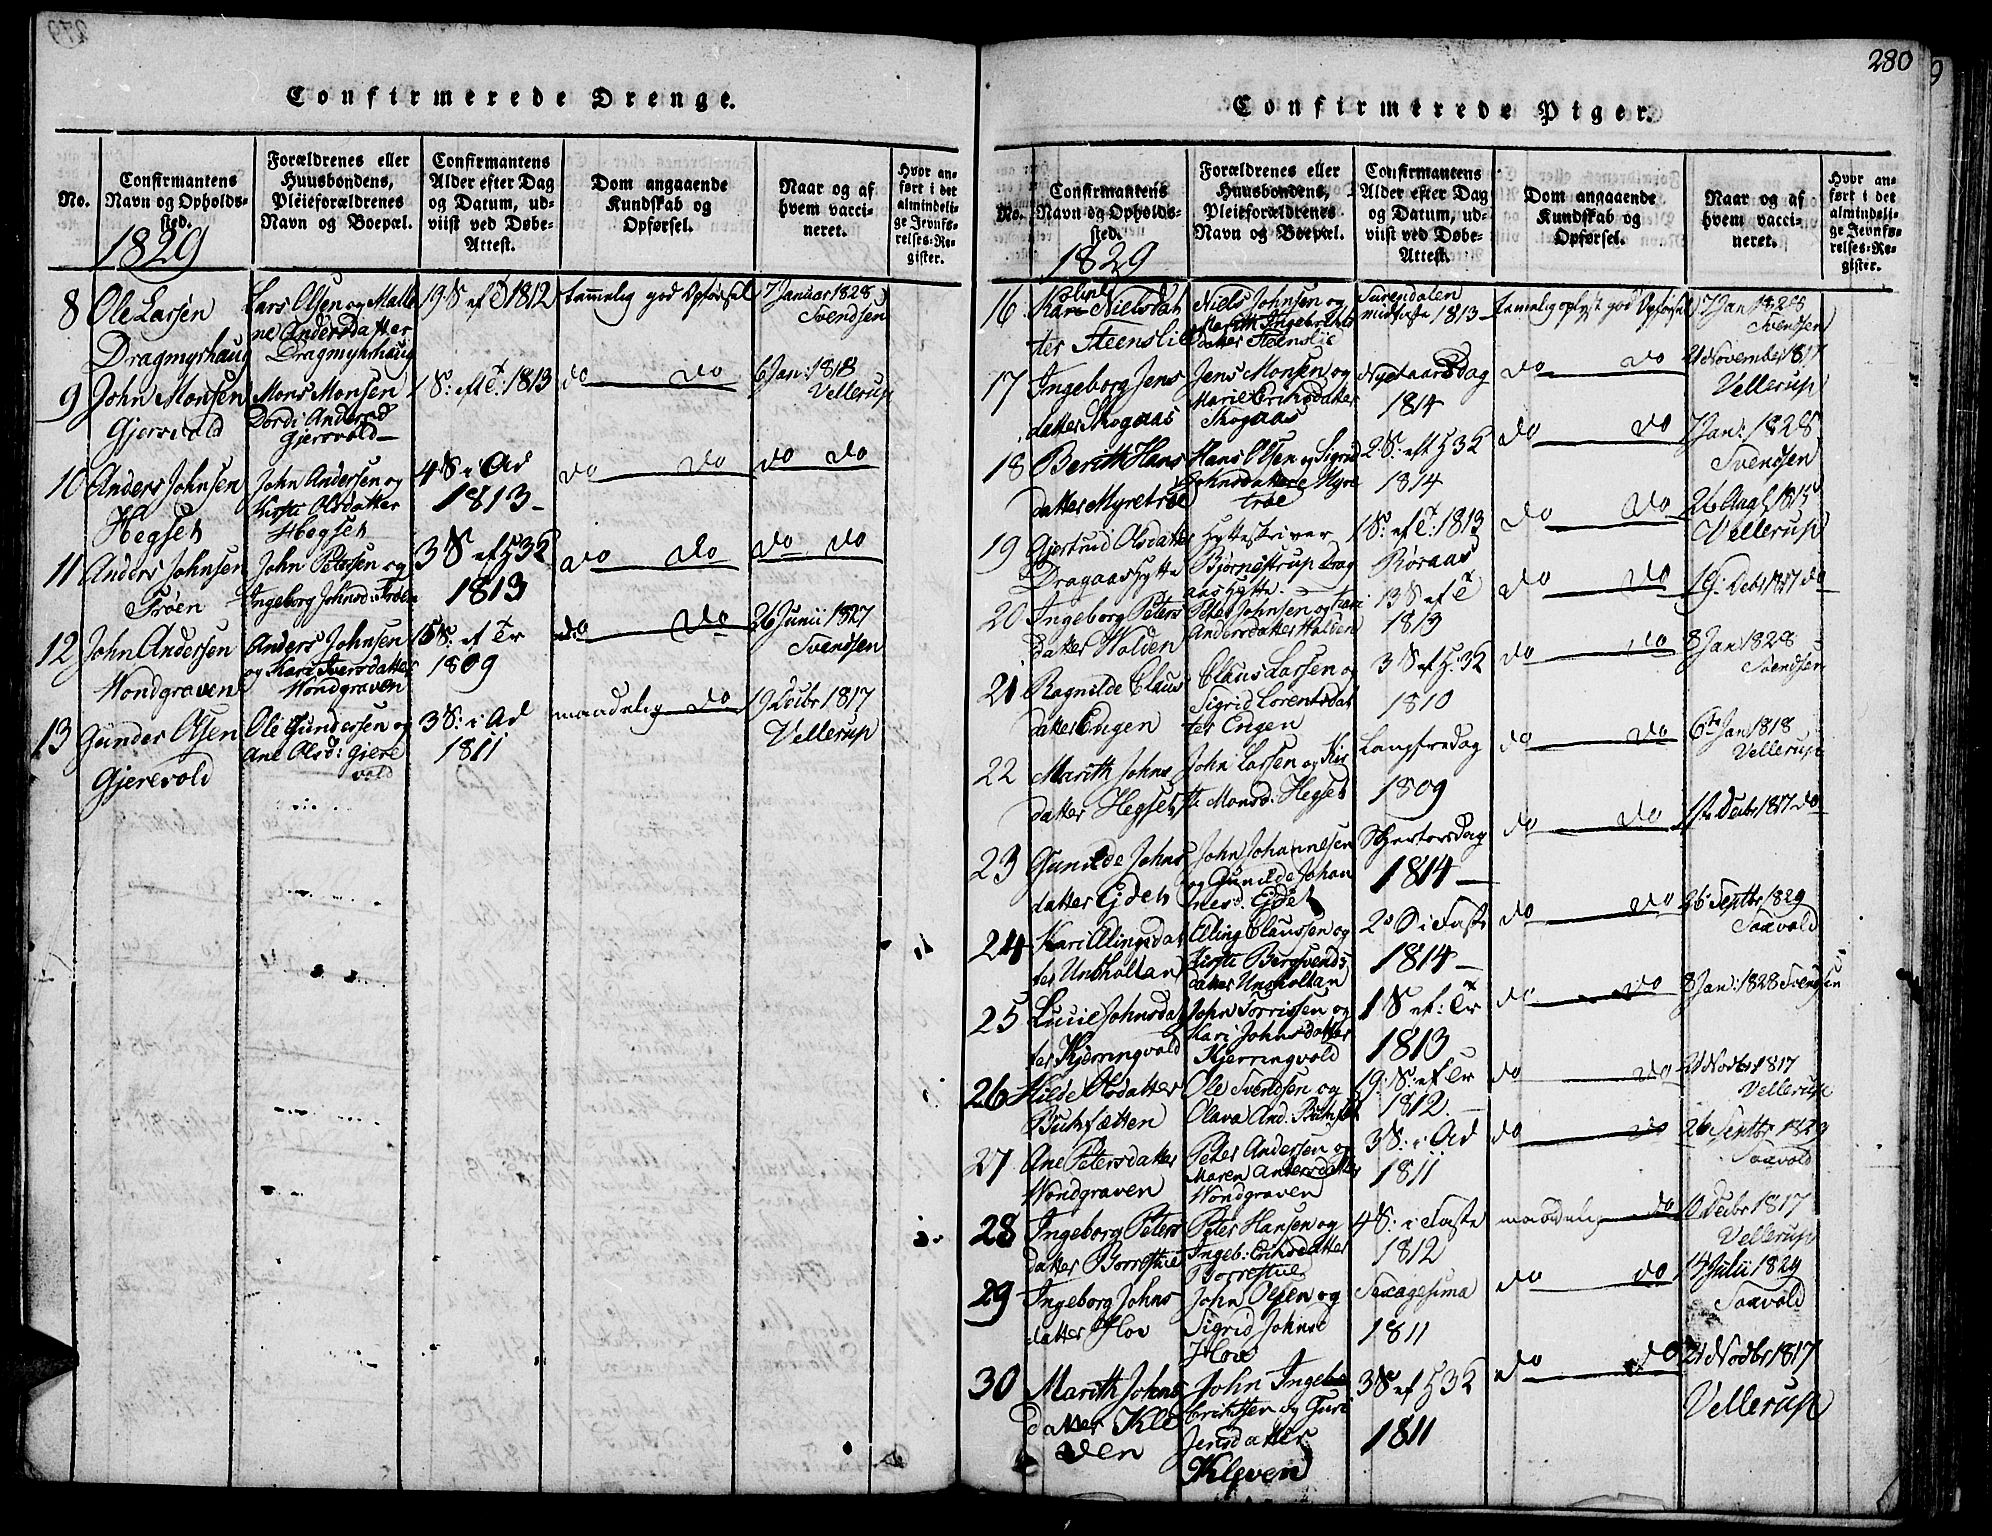 Confirmerede Drenge.
No.
Confirmantens
Navn og Opholds-
sted.
Forældrenes eller
Huusbondens,
Pleieforældrenes
Navn og Boepæl.
Confirmantens
Alder efter Dag
og Datum, ud-
viist ved Døbe-
Attest.
Dom angaaende
Kundskab og
Opførsel.
Naar og af
hvem vacci-
neret.
Hvor an-
ført i det
almindeli-
ge Jevnfø-
relses-Re-
gister.
1829
8 Ole Larsen
Dragmyrhaug
Lars Olsen og Malle
ne Andersdatter
Dragmyrhaug
19 S ef T 1812
temmelig god Opførsel
7 Januar 1828
Svendsen
9 John Monsen
Gjersvold
Mons Monsen
Dordi Andersd
Gjersvold
1 S: eft T. 1813
do do
6 Jan: 1818
Vellerup
10 Anders Johnsen
Hegset
John Andersen og
Kirsti Olsdatter
Hegset
4 S i Ad
1813
do do
do do
11 Anders Johnsen
Trøen
John Petersen og
Ingeborg Johnsd: Trøen
3 S ef H 3 K
1813
do do
do do
12 John Andersen
Vondgraven
Anders Johnsen
og Kari Iversdatter
Vondgraven
15 S: ef Tr
1809
do do
26 Junii 1827
Svendsen
13 Gunder Olsen
Gjerevold
Ole Gundersen og
Ane Olsd: Gjere
vold
3 S: i Ad
1811
maadelig do
19 Decbr 1817
Vellerup
280
Confirmerede Piger.
No.
Confirmantens
Navn og Opholds-
sted.
Forældrenes eller
Huusbondens,
Pleieforældrenes
Navn og Boepæl.
Confirmantens
Alder efter Dag
og Datum, ud-
viist ved Døbe-
Attest.
Dom angaaende
Kundskab og
Opførsel.
Naar og af
hvem vacci-
neret.
Hvor an-
ført i det
almindeli-
ge Jevnfø-
relses-Re-
gister.
1829
16 Nielsdat
ter Steenslie
Niels Johnsen og
Marith Ingebrigts
datter Steenslie
Surendalen
1813
temelig oplyst god Opførsel
7 Jan 1828
Svendsen
17 Ingeborg Jens
datter Skogaas
Jens Monsen og
Marie Eriksdatter
Skogaas
Nyetaarsdag
1814
do do
21 November 1817
Vellerup
18 Berith Hans
datter Myretrøe
Hans Olsen og Sigrid
Johnsdatter Myre
trøe
2 S: eft H 3 K
1814
do do
7 Jan: 1828
Svendsen
19 Gjertrud Olsdatter
Dragaas Hytte
Hytteskriver
Bjørnestrup Drag
aas Hytte
1 S: ef T: 1813
Røraas
do do
26 Aug 1815
Vellerup
20 Ingeborg Peters
datter Holden
Peter Johnsen og
Andersdatter Holden
13 S ef T
1813
do do
19. Decbr 1817 do
21 Ragnilde Claus
datter Engen
Claus Larsen og
Sigrid Lorentsdat
ter Engen
3 S ef H: 3 K
1810
do do
8 Jan 1828
Svendsen
22 Marith Johns
datter Hegset
John Larsen og Kir
sti Monsd: Hegset
Langfredag
1809
do do
6te Jan 1818
Vellerup
23 Gunilde Johns
datter Ejdet
John Johannesen
og Gunilde Johan
nesd. Ejdet
Skjertorsdag
1814
do do
Decbr 1817 do
24 Kari Elingsdat
ter Unsholtan
Elling Claussen og
Kirsti Bergsvends
datter Unsholtan
2 S i Faste
1814
do do
26 Septbr 1829
Saxvold
25 Lucie Johnsdat
ter Kjerringvold
John Torrissen og
Kari Johnsdatter
Kjerringvold
1 S ef: Tr
1813
do do
8 Jan: 1828 Svendsen
26 Kilde Olsdatter
Bukfætten
Ole Svendsen og
Olava And. Bukfæt
19: S: ef Tr
1812.
do do
21 Novbr 1817
Vellerup
27 Ane Petersdatter
Vondgraven
Peter Andersen og
Maren Andersdatter
Vondgraven
3 S: i Ad
1811
do do
26 Septbr 1829
Saxvold
28 Ingeborg Peters
datter Borrestue
Peter Hansen og
Ingeb: Eriksdatter
Borrestue
4 S: i Faste
1812
maadelig do
Decbr 1817
Vellerup
29 Ingeborg Johns
datter Hov
John Olsen og
Sigrid Johnsd
Hov
Sexagesima
1811
do do
14 Julii 1829
Saxvold
30 Marith Johns
datter Kle
ven
John Ingeb
Eriktsen og Guri
Jensdatter
Kleven
3 S ef H 3 K
1811
do do
21 Novbr 1817
Vellerup